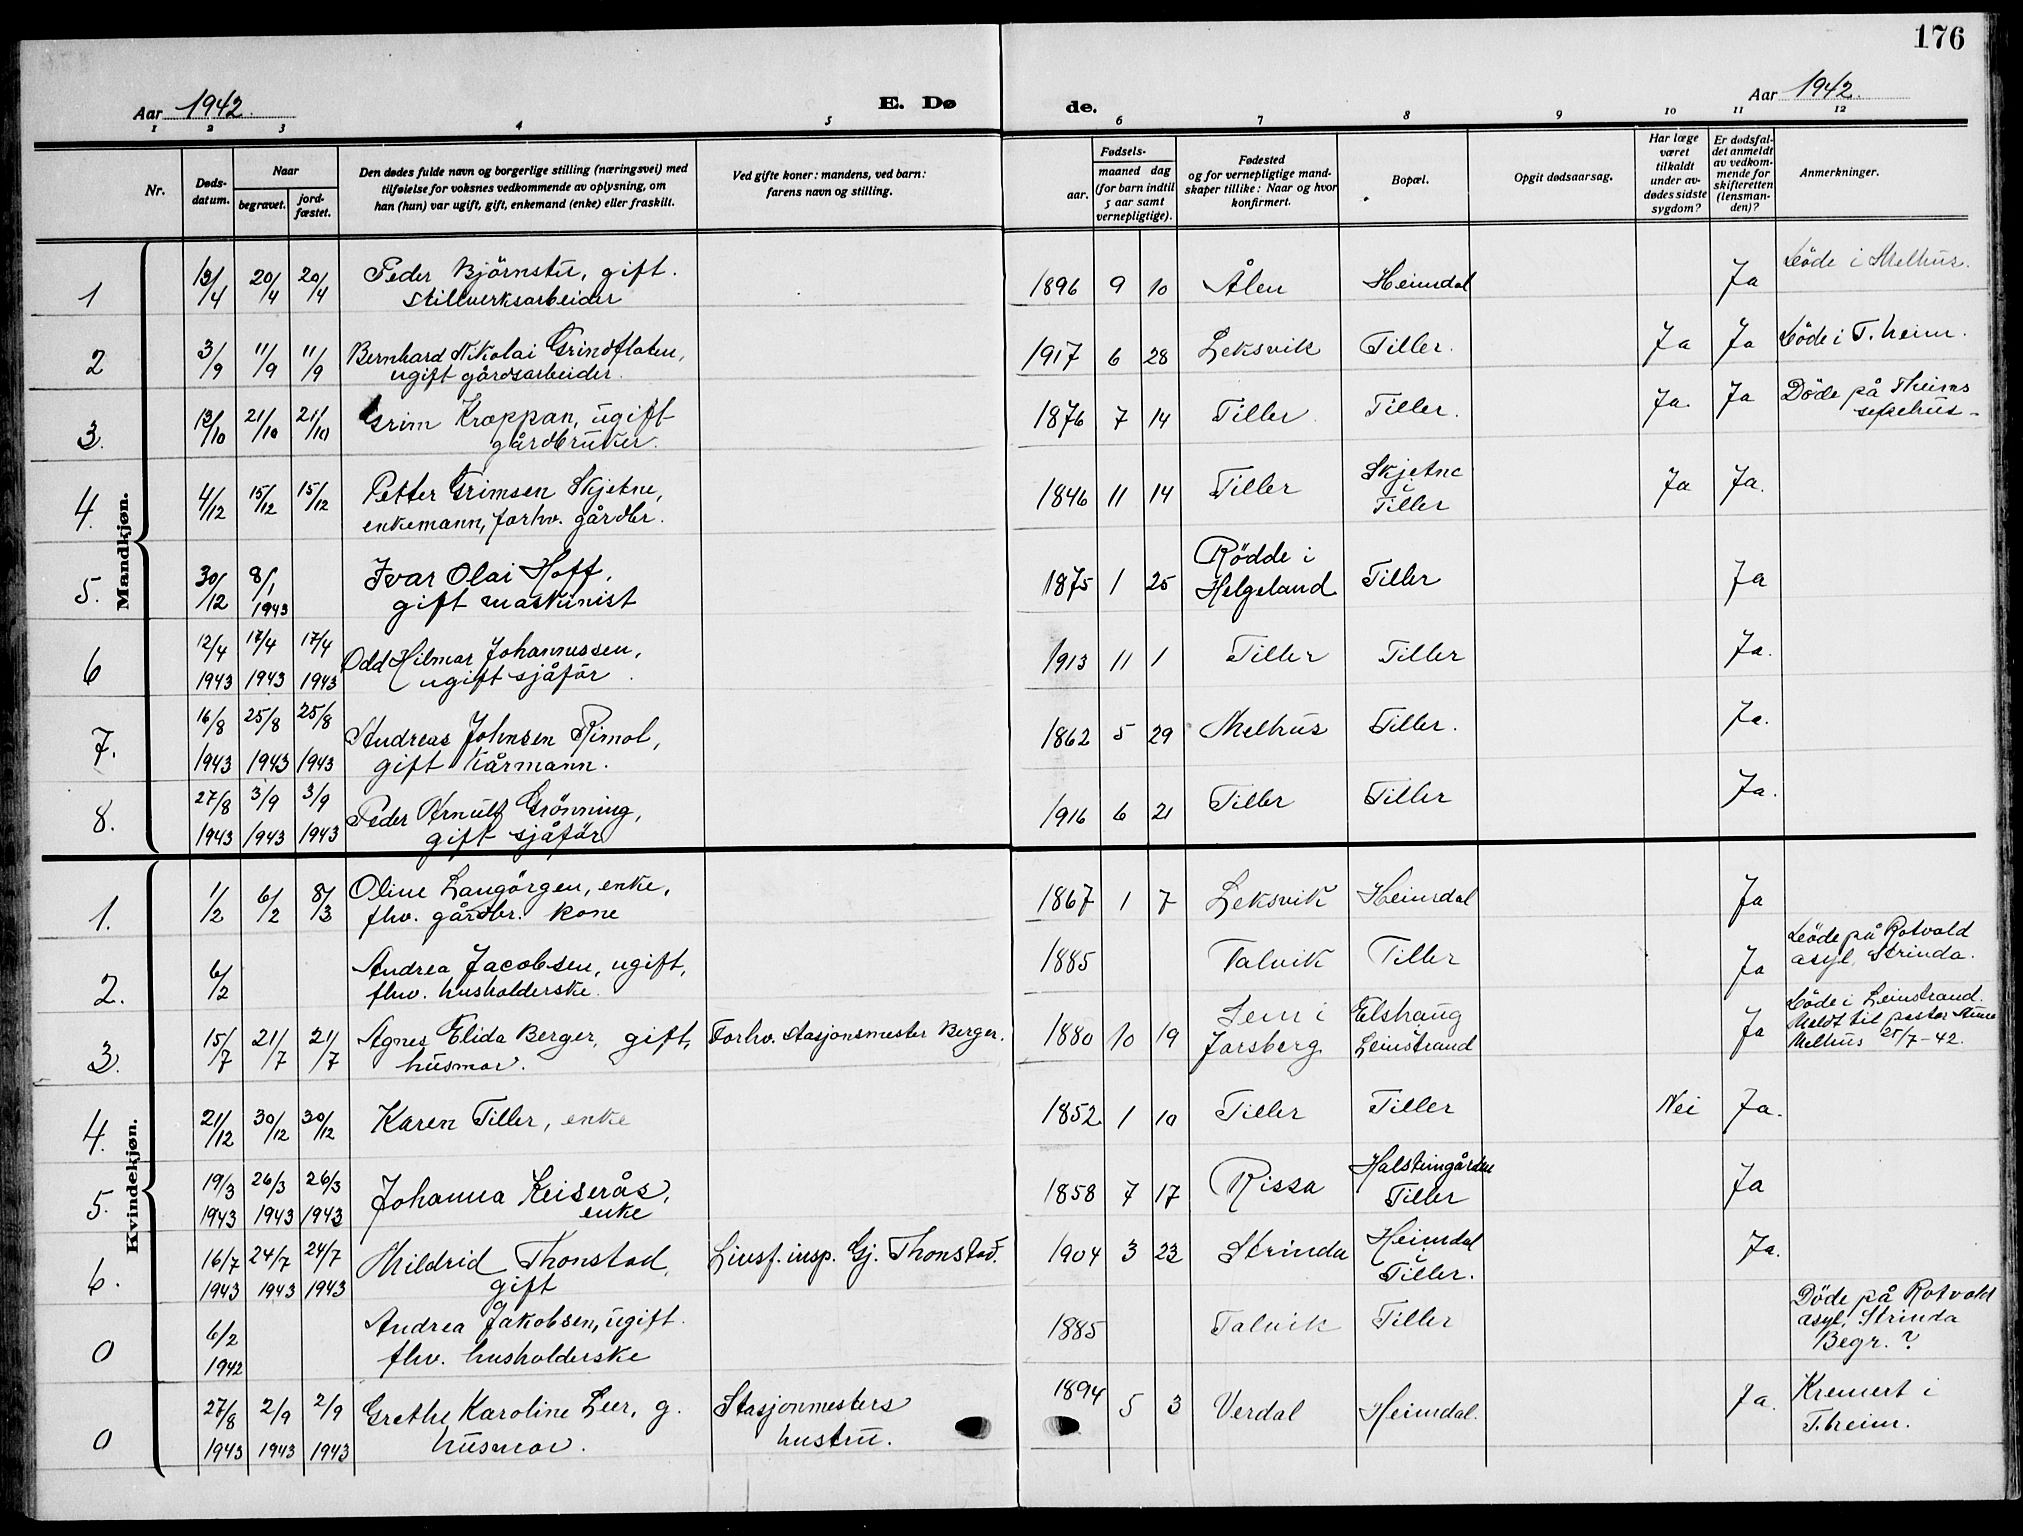 176
Aar 1942.
E. Dø
de.
Aar 1942.
1 2 3 4 5 6 7 8 9 10 11 12
Nr.
Døds-
datum.
Naar
begravet.
jord-
fæstet.
Den dødes fulde navn og borgerlige stilling (næringsvei) med
tilføielse for voksnes vedkommende av oplysning, om
han (hun) var ugift, gift, enkemand (enke) eller fraskilt.
Ved gifte koner: mandens, ved barn:
farens navn og stilling.
Fødsels-
aar.
maaned dag
(for barn indtil
5 aar samt
vernepligtige).
Fødested
og for vernepligtige mand-
skaper tillike: Naar og hvor
konfirmert.
Bopæl.
Opgit dødsaarsag.
Har læge
været
tilkaldt
under av-
dødes sidste
sygdom?
Er dødsfal-
det anmeldt
av vedkom-
mende for
skifteretten
(lensman-
den)?
Anmerkninger.
Mandkjøn.
1 13/4 20/4 20/4 Peder Bjørnstu, gift. 1896 9 10 Ålen Heimdal Ja Døde i Melhus.
stillverksarbeider
2 3/9 11/9 11/9 Bernhard Nikolai Grindflaten, 1917 6 28 Leksvik Tiller. Ja Ja Døde i T.heim.
ugift gårdsarbeider.
3. 13/10 21/10 21/10 Grim Kroppan, ugift 1876 7 14 Tiller Tiller. Ja. Ja Døde på Theims
gårdbruker. sykehus.
4. 4/12 15/12 15/12 Petter Grimsen Skjetne, 1846 11 14 Tiller Skjetne i Tiller Ja Ja.
enkemann, forhv. gårdbr.
5. 30/12 8/1 1943 Ivar Olai Hoff, 1875 1 25 Rödde i Helgeland Tiller Ja
gift maskinist
6 12/4 1943 17/4 1943 17/4 1943 Odd Hilmar Johannessen, 1913 11 1 Tiller Tiller Ja.
ugift sjåför.
7. 16/8 1943 25/8 1943 25/8 1943 Andreas Johnsen Rimol, 1862 5 29 Melhus Tiller. Ja.
gift kårmann.
8. 27/8 1943 3/9 1943 3/9 1943 Peder Arnulf Grönning, 1916 6 21 Tiller Tiller Ja.
gift sjåför
Kvindekjøn.
1. 1/2 6/2 8/3 Oline Langörgen, enke, 1867 1 7 Leksvik Heimdal Ja
fhv. gårdbr. kone
2. 6/2 Andrea Jacobsen, ugift, 1885 Talvik Tiller Ja Döde på Rotvold
fhv. husholderske. asyl, Strinda.
3. 15/7 21/7 21/7 Agnes Elida Berger, gift, Forhv. stasjonsmester Berger. 1880 10 19 Sem i Jarsberg Elshaug Leinstrand Ja Döde i Leinstrand.
husmor. Meldt til pastor
Melhus 25/7-42.
4. 21/12 30/12 30/12 Karen Tiller, enke 1852 1 10 Tiller Tiller Nei Ja.
5. 19/3 1943 26/3 1943 26/3 1943 Johanna Keiserås, 1858 7 17 Rissa Halsteingården Tiller Ja
enke
6. 16/7 1943 24/7 1943 24/7 1943 Mildrid Thonstad, Livsf. insp. Gj. Thonstad. 1904 3 23 Strinda Heimdal i Tiller. Ja.
gift
0 6/2 1942 Andrea Jakobsen, ugift. 1885 Talvik Tiller Döde på Rotvold
fhv. husholderske asyl, Strinda
Begr.?
0 27/8 1943 2/9 1943 2/9 1943 Grethe Karoline Leer, g. Stasjonmesters 1894 5 3 Verdal Heimdal. Ja. Kremert i
husmor. hustru. T.heim.